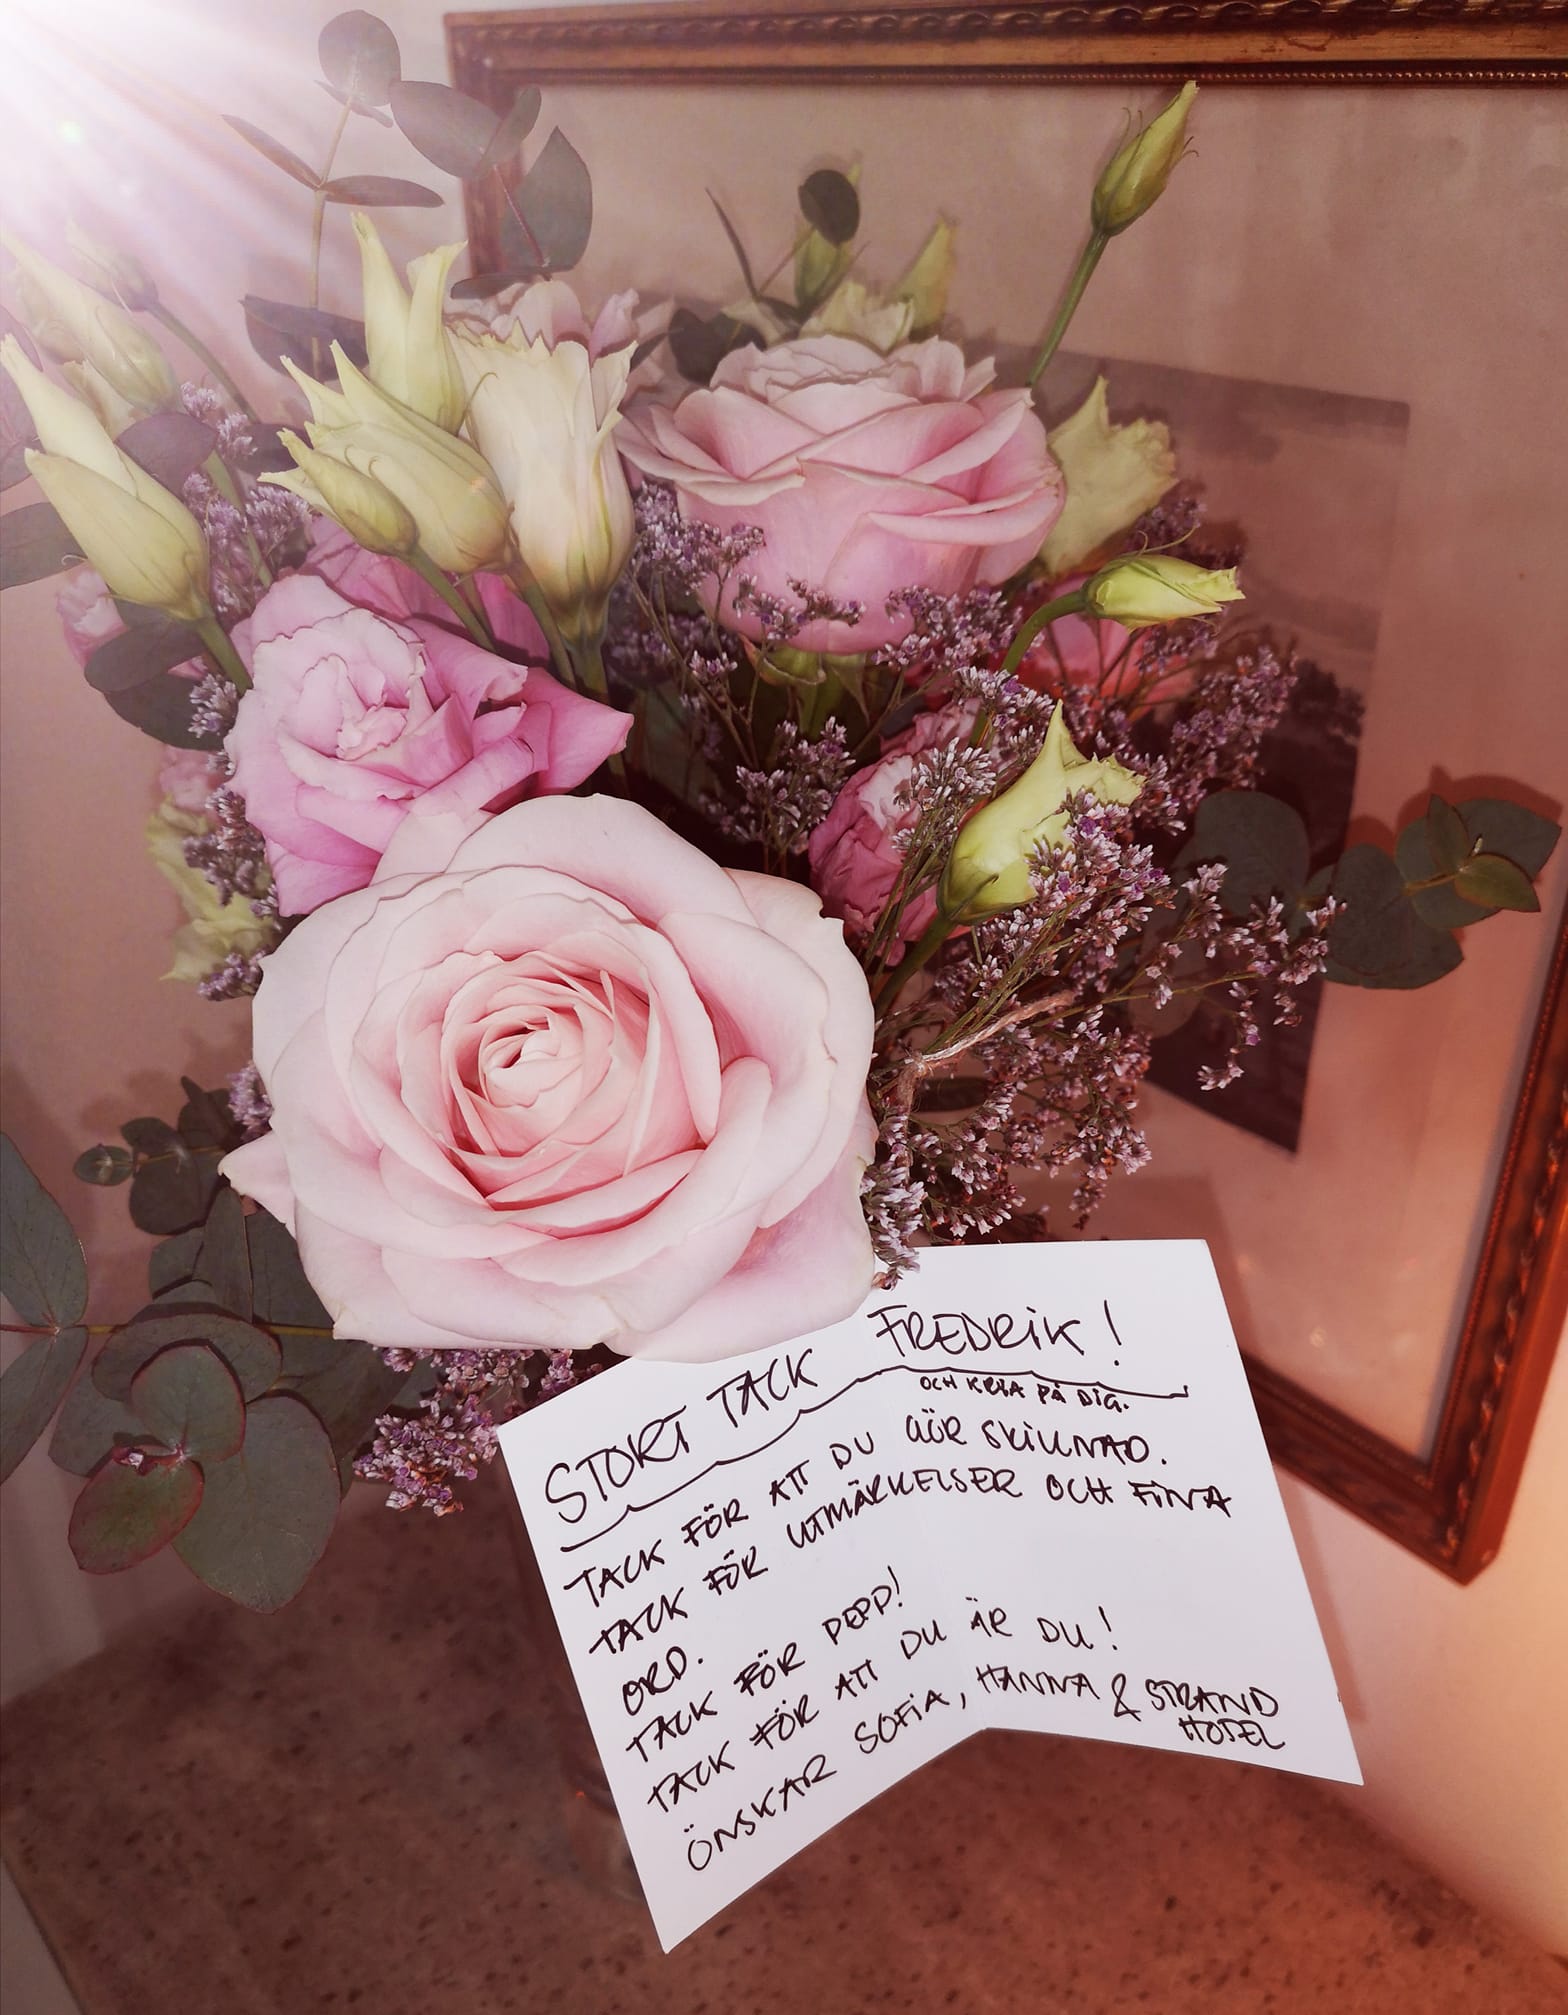 STORT TACK FREDRIK!
OCH KREA PÅ DIG.
TACK FÖR ATT DU GÖR SKILLNAD.
TACK FÖR UTMÄRKELSER OCH FINA
ORD.
TACK FÖR PEPP!
TACK FÖR ATT DU ÄR DU!
ÖNSKAR SOFIA, HANNA & STRAND
HOTEL